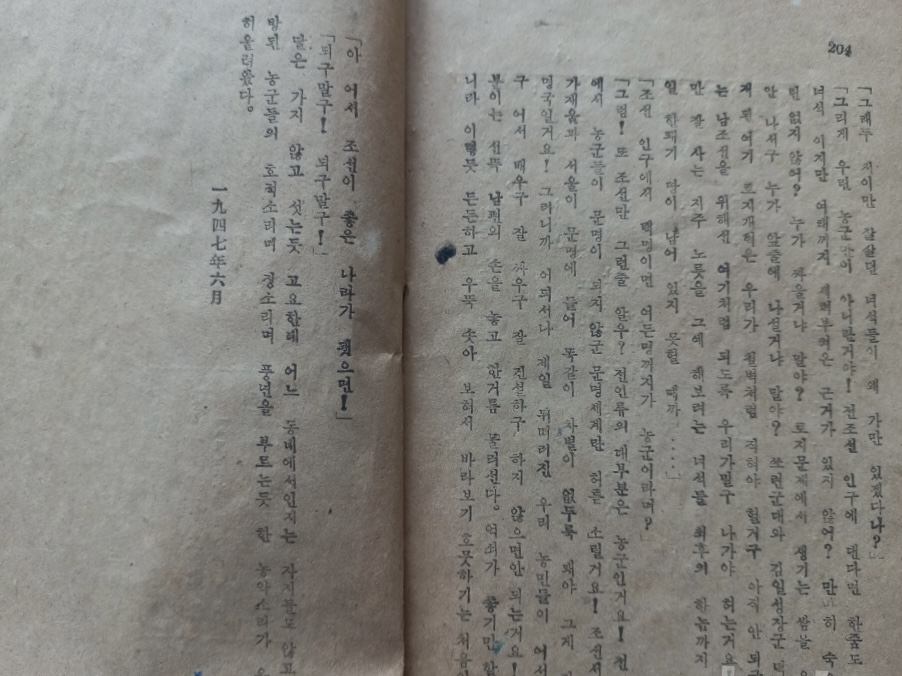 204
「그래두 지이만 잘살던 녀석들이 왜 가만 있겠다나?」
「그러게 우린 농군들이 아니란거야! 전조선 인구에 댄다면 한줌도
녀석 이지만 여태까지 세력부려온 근거가 있지 않어? 만 히 숙
린 없지 않어? 누가 싸울거냐 말야? 토지문제에서 생기는 쌈을
안 나서구 누가 앞줄에 나설거냐 말야? 쏘련군대와 김일성장군 덕
게 된 여기 토지개혁은 우리가 철벽처럼 직혀야 헐거구 아직 안 되
는 남조선을 위해선 여기처럼 되도록 우리가밀구 나가야 허는거요
만 잘 사는 지주 노릇을 그예 해보려는 녀석들 최후의 한놈까지
일 한패기 땅이 남어 있지 못할 때까 ····」
「조선 인구에서 백명이면 여든명까지가 농군이라며?」
「그럼! 또 조선만 그런줄 알우? 전인류의 대부분은 농군인거요! 전
에서 농군들이 문명이 되지 않군 문명세계란 허튼 소릴거요! 조선서
가재울과 서울이 문명에 들어 똑같이 차별이 없두룩 돼야 그게
명국일거요! 그러니까 어되서나 제일 뒤떠러진 우리 농민들이 어서
구 어서 배우구 잘 싸우구 잘 건설하구 하지 않으면안 되는거요!
분이는 선뜻 남편의 손을 놓고 한거름 물러선다. 억쇠가 좋기만 할
니라 이렇듯 든든하고 우뚝 솟아 보혀서 바라보기 흐뭇하기는 처음
「아 어서 조선이 좋은 나라가 됐으면!」
「되구말구! 되구말구!」
달은 가지 않고 섯는듯 고요한데 어느 동네에서인지는 자지들도 않고
방된 농군들의 호적소리며 장소리며 풍년을 부르는듯 한 농악소리가
히 울려왔다.
一九四七年六月